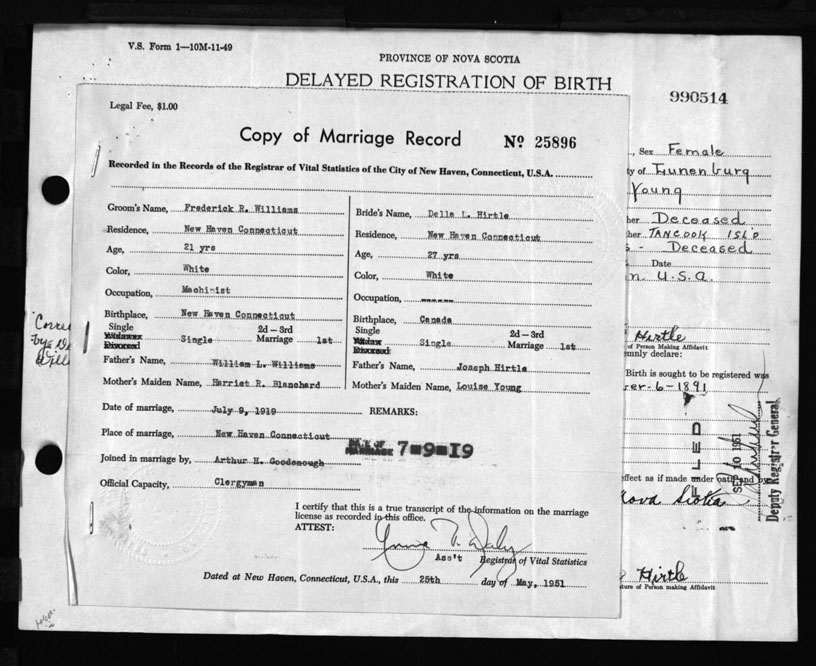 V.S. Form 1—10M-11-49
PROVINCE OF NOVA SCOTIA
DELAYED REGISTRATION OF BIRTH
990514
Legal Fee, $1.00
Copy of Marriage Record No 25896
Recorded in the Records of the Registrar of Vital Statistics of the City of New Haven, Connecticut, U.S.A.
Groom's Name, Frederick R. Williams
Residence, New Haven Connecticut
Age, 21 yrs
Color, White
Occupation, Machinist
Birthplace, New Haven Connecticut
Single
Widower Single 2d—3rd Marriage 1st
Divorced
Father's Name, William L. Williams
Mother's Maiden Name, Harriet R. Blanchard
Bride's Name, Della L. Hirtle
Residence, New Haven Connecticut
Age, 27 yrs
Color, White
Occupation, ------
Birthplace, Canada
Single
Widow Single 2d—3rd Marriage 1st
Divorced
Father's Name, Joseph Hirtle
Mother's Maiden Name, Louise Young
Date of marriage, July 9, 1919
REMARKS:
Place of marriage, New Haven Connecticut
MARRIAGE 7-9-19
Joined in marriage by, Arthur H. Goodenough
Official Capacity, Clergyman
I certify that this is a true transcript of the information on the marriage
license as recorded in this office.
ATTEST:
Ass't Registrar of Vital Statistics
Dated at New Haven, Connecticut, U.S.A., this 25th day of May, 1951
, Sex Female
ty of Lunenburg
Young
her Deceased
her TANCOOK ISL'D
- Deceased
Date
n. U.S.A.
Hirtle
of Person Making Affidavit
mnly declare:
Birth is sought to be registered was
er-6-1891
FILED
SEP 10 1951
Deputy Registr'r General
ffect as if made under oath and by
Nova Scotia
Hirtle
ture of Person making Affidavit